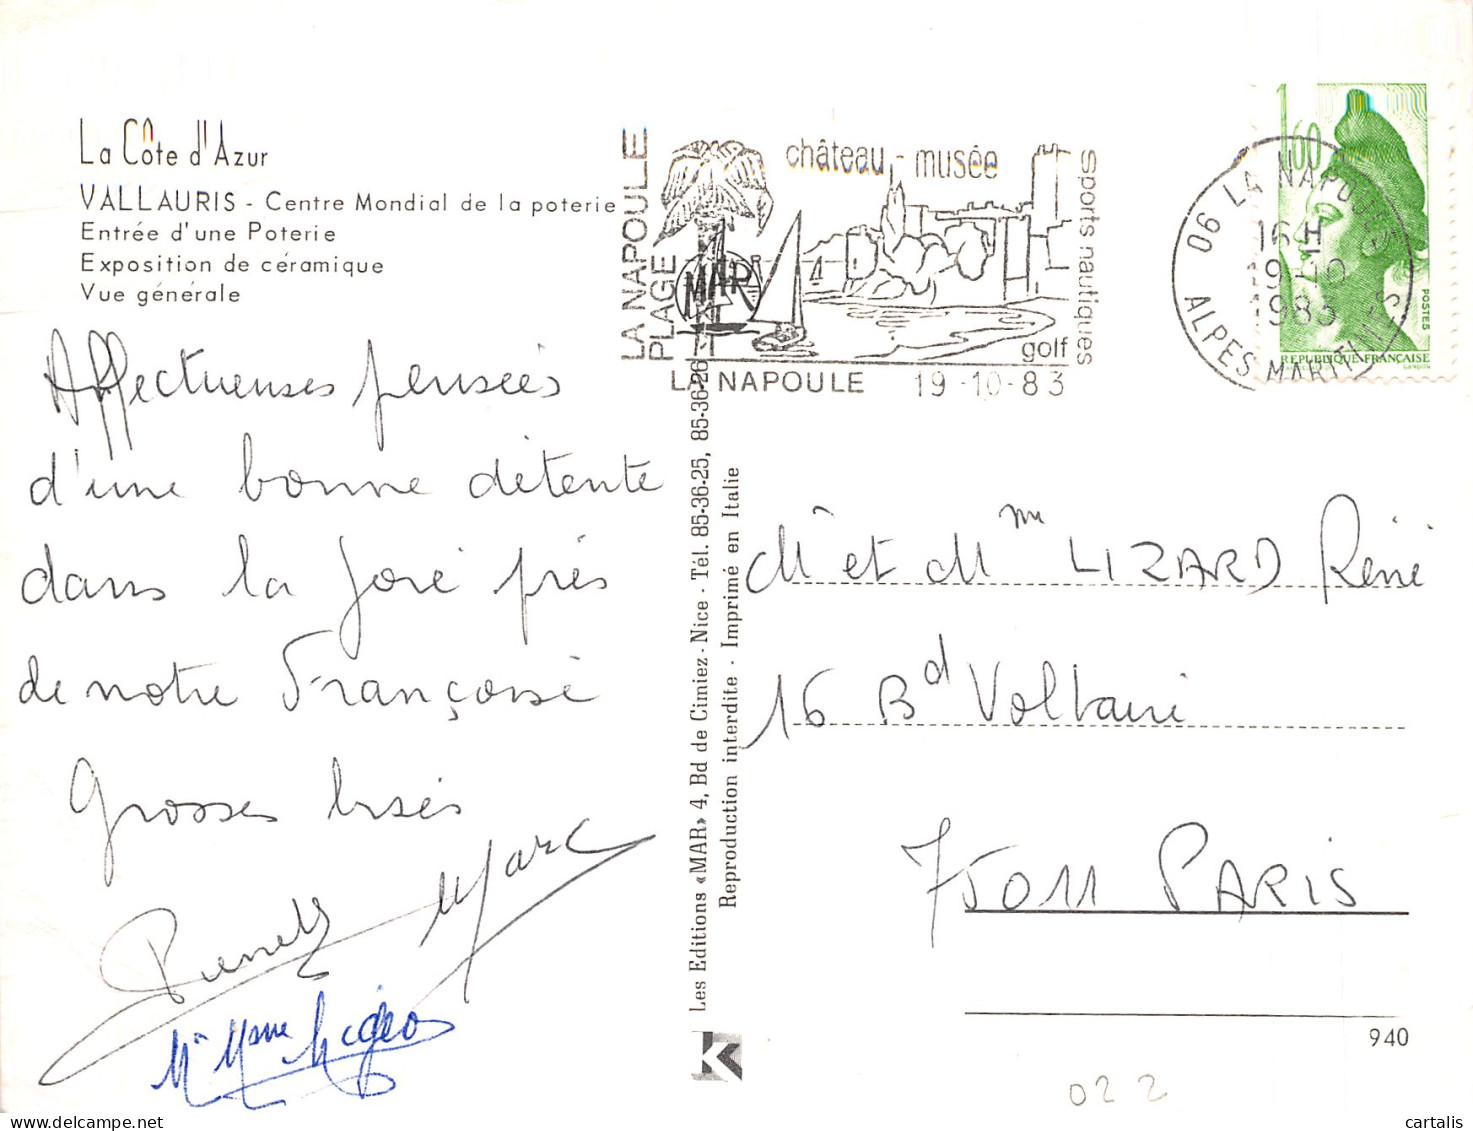 La Côte d'Azur
VALLAURIS - Centre Mondial de la poterie
Entrée d'une Poterie
Exposition de céramique
Vue générale
Affectueuses pensées
d'une bonne détente
dans la joie près
de notre Françoise
Grosses bises
Marc
Mr Mme
LA NAPOULE
PLAGE
château - musée
Sports nautiques
golf
MAR
LA NAPOULE 19-10-83
1,60
POSTES
REPUBLIQUE FRANÇAISE
GANDON
06 LA NAPOULE
16 H
19-10
1983
ALPES MARITIMES
Les Editions «MAR» 4, Bd de Cimiez - Nice - Tél. 85-36-25, 85-36-26
Reproduction interdite - Imprimé en Italie
Mr et Mme LIZARD René
16 Bd Voltaire
75011 PARIS
940
K
022
cartalis